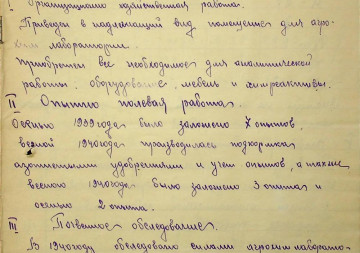 I Организационно хозяйственная работа.
Приведен в надлежащий вид помещение для агро-
хим лаборатории.
Приобретен все необходимое для аналитической
работы, оборудование, мебель и химреактивы.
II Опытно полевая работа.
Осенью 1939 года было заложено 7 опытов,
весной 1940 года производилась подкормка
азотистыми удобрениями и учет опытов, а также
весною 1940 года было заложено 3 опыта и
осенью 2 опыта.
III Почвенное обследование.
В 1940 году обследовано силами агрохим лаборато-